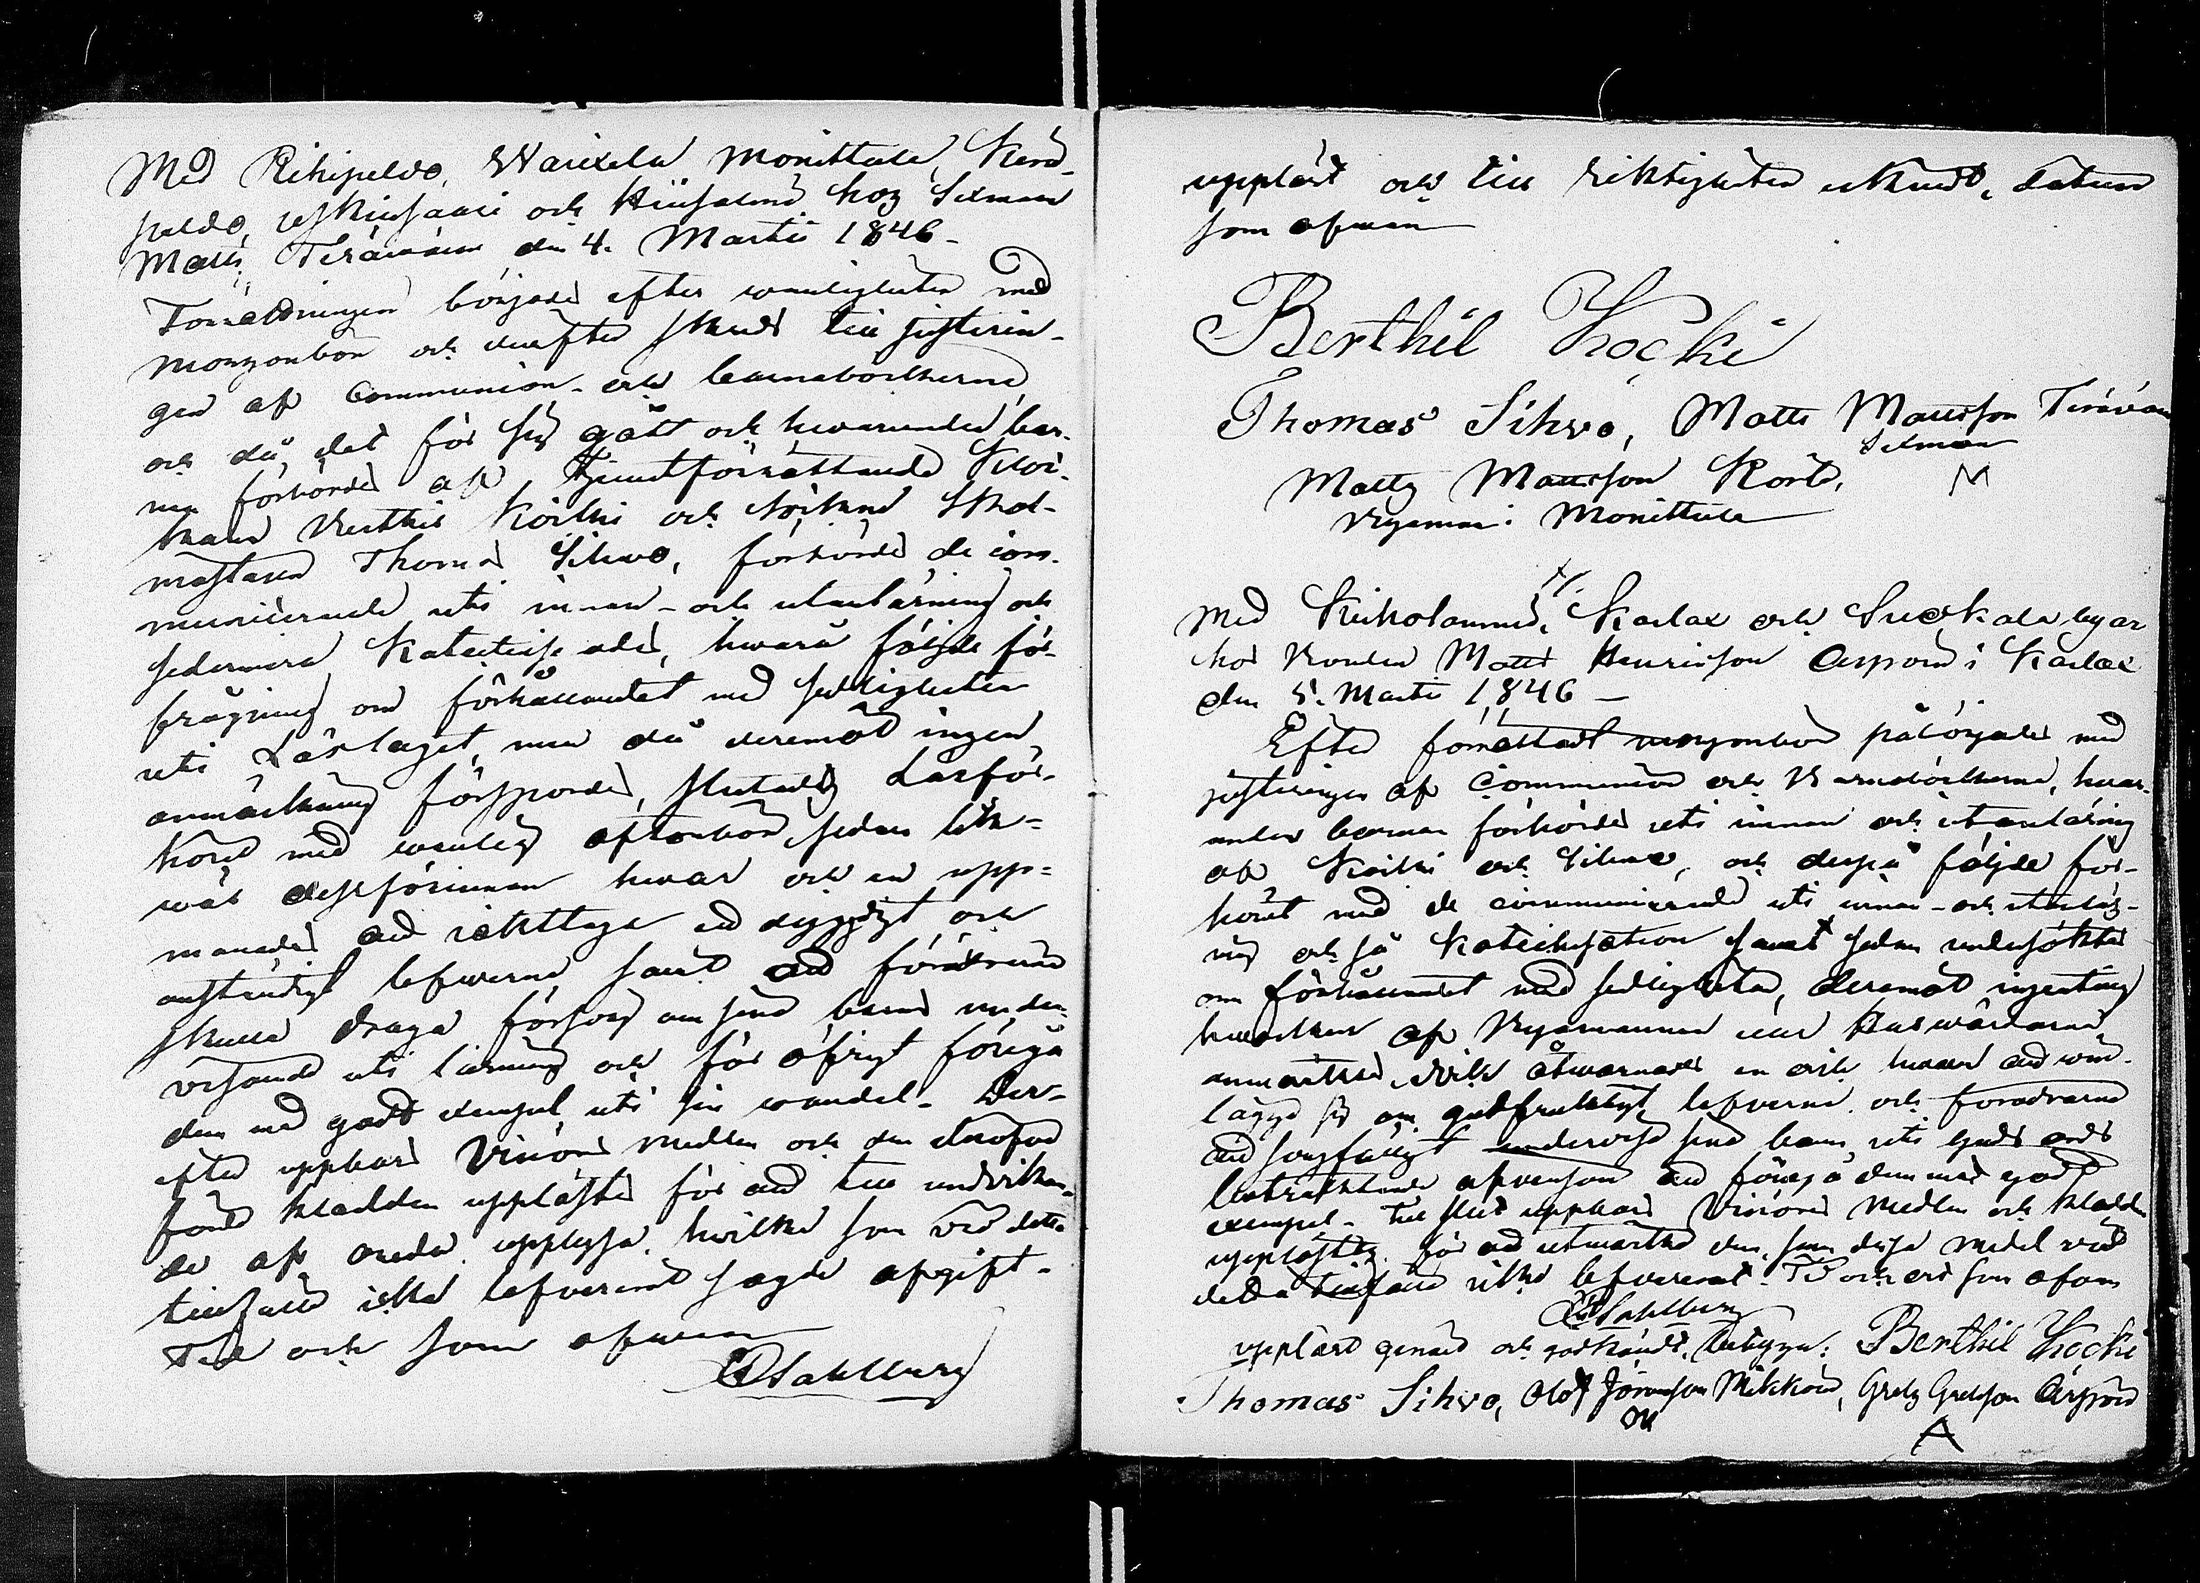 Med Rihipeldo, Warixela Monittula, Kerä-
peldo, och Hiisalmi hoz Sexman
Matts Teräväin den 4. Martii 1846 –
Förrättningen börjades efter wanligheten med
morgonbön och derefter skreds till justerin-
gen af Communion- och barnaböckerna
och då det för sig gått och hwarunder bar-
nen förhördes af Tjenstförrättande Kloc-
karen Berthil Köcki och Sockne Skol-
mästaren Thomas Sihwo, förhördes de com-
municerande uti innan- och utanläsning och
sedermera Katecheserades, hwarå följde för-
frågning om förhållandet med sedligheten
uti Läslaget, men då deremot ingen
anmärkning försports, slutades Läsför-
höret med wanlig aftonbön sedan lik-
wäl dessförinnan hwar och en upp-
manades att iakttaga ett dygdigt och
anständigt lefwerne, samt att föräldrarne
skulle draga försorg om sina barns under-
visande uti läsning och för öfrigt föregå
dem med godt exempel uti sin wandel. Der-
efter uppbars Visions medlen och den derofver
förda kladden upplästes för att till undvikan-
de af oreda upplysa hwilka som vid detta
tillfälle icke lefvererat sagde afgift.
Tid och som ofwan
Stahlberg
uppläst och till riktigheten erkändt, datum
som ofwan
Berthil Köcki
Thomas Sihvo, Matts Mattsson Teräväin
Sexman
Matts Mattsson
M
Byeman i Monittula
Med Keikolammi, Karlax och Suokala byar
hos Bonden Matts Henricsson i Karlax
den 5. Martii 1846 –
Efter förrättad morgonbön påbörjades med
justeringen af Communion och Barnaböckerna, hwar-
under barnen förhördes uti innan och utanläsning
af Köcki och Sihwo, och derpå följde för-
höret med de communicerande uti innan- och utanläs-
ning och så Katechisation samt sedan undersöktes
om förhållandet med sedligheten, deremot ingenting
hwarken af Byemannen eller Husvärdarne
anmärktes, dock åtwarnades en och hwar att win-
lägga sig om gudfruktigt lefverne och föräldrarne
att sorgfälligt undervisa sina barn uti Guds ords
betraktande äfvensom att föregå dem med godt
exempel. Till slut uppbars Visions Medlen och kladden
upplästes för att utmärka dem, som dessa medel wid
detta tillfälle icke lefvererat. Tid och ort som ofvan
Stahlberg
uppläst genast och godkändt. betyga: Berthil Köcki
Thomas Sihvo, Olof Mikkoin,
OM
A